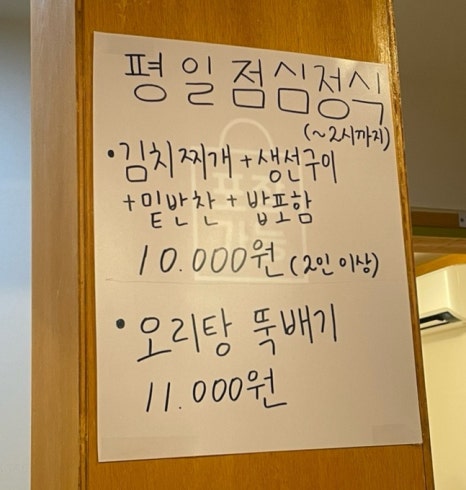 평일점심정식
(~2시까지)
•김치찌개+생선구이
+밑반찬+밥포함
10.000원(2인이상)
•오리탕 뚝배기
11.000원
포장
가능